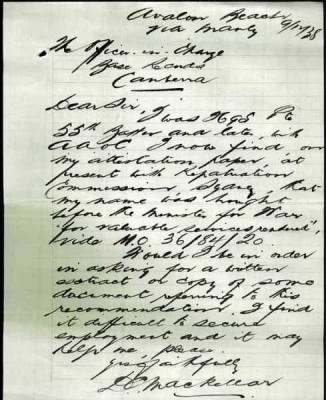 Avalon Beach
via Manly 9/12/38
The Officer-in-Charge
Base Records
Canberra
Dear Sir, I was 3695 Pte
55th Battn and later, with
A.A.O.C. I now find, on
my attestation paper, at
present with Repatriation
Commission, Sydney, that
my name was brought
before the Minister for War
"for valuable services rendered",
vide M.O. 36/84/20.
Would I be in order
in asking for a written
extract or copy of some
document referring to this
recommendation. I find
it difficult to secure
employment and it may
help me, please.
yrs faithfully
MacKellar